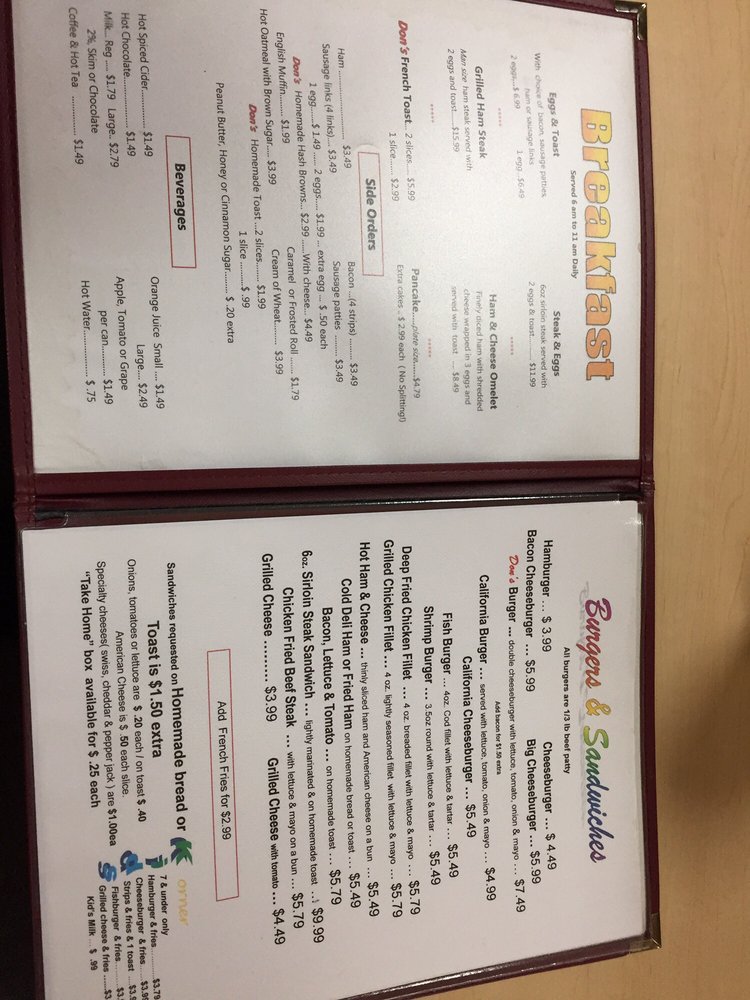 Breakfast
Served 6 am to 11 am Daily
Eggs & Toast
With choice of bacon, sausage patties,
ham or sausage links
2 eggs....$ 6.99 1 egg...$6.49
*****
Steak & Eggs
6oz sirloin steak served with
2 eggs & toast............ $11.99
*****
Grilled Ham Steak
Man size ham steak served with
2 eggs and toast..... $15.99
*****
Ham & Cheese Omelet
Finely diced ham with shredded
cheese wrapped in 3 eggs and
served with toast .... $8.49
*****
Don's French Toast.. 2 slices.... $5.99
1 slice........ $2.99
Pancake.....plate size.......$4.79
Extra cakes...$ 2.99 each ( No Splitting!)
Side Orders
Ham ........................ $3.49
Bacon ...(4 strips) ......... $3.49
Sausage links (4 links).... $3.49
Sausage patties ......... $3.49
1 egg...... $ 1.49 ..... 2 eggs.... $1.99 ... extra egg ... $ .50 each
Don's Homemade Hash Browns... $2.99 .....With cheese... $4.49
English Muffin......... $1.99
Caramel or Frosted Roll ....... $1.79
Hot Oatmeal with Brown Sugar..... $3.99
Cream of Wheat.......... $3.99
Don's Homemade Toast ...2 slices........ $1.99
1 slice ........$ .99
Peanut Butter, Honey or Cinnamon Sugar.......... $ .20 extra
Beverages
Hot Spiced Cider............... $1.49
Orange Juice Small .... $1.49
Hot Chocolate.................. $1.49
Large.... $2.49
Milk... Reg .... $1.79 Large.. $2.79
Apple, Tomato or Grape
2%, Skim or Chocolate
per can............ $1.49
Coffee & Hot Tea .............. $1.49
Hot Water............ $ .75
Burgers & Sandwiches
All burgers are 1/3 lb beef patty
Hamburger ... $ 3.99
Cheeseburger ... $ 4.49
Bacon Cheeseburger ... $5.99
Big Cheeseburger ... $5.99
Don's Burger ... double cheeseburger with lettuce, tomato, onion & mayo .... $7.49
Add bacon for $1.50 extra
California Burger ... served with lettuce, tomato, onion & mayo ... $4.99
California Cheeseburger ... $5.49
Fish Burger ... 4oz. Cod fillet with lettuce & tartar .... $5.49
Shrimp Burger ... 3.5oz round with lettuce & tartar .... $5.49
Deep Fried Chicken Fillet .... 4 oz. breaded fillet with lettuce & mayo .... $5.79
Grilled Chicken Fillet ... 4 oz. lightly seasoned fillet with lettuce & mayo .... $5.79
Hot Ham & Cheese ... thinly sliced ham and American cheese on a bun .... $5.49
Cold Deli Ham or Fried Ham on homemade bread or toast .... $5.49
Bacon, Lettuce & Tomato ... on homemade toast .... $5.79
6oz. Sirloin Steak Sandwich ... lightly marinated & on homemade toast .... $9.99
Chicken Fried Beef Steak ... with lettuce & mayo on a bun .... $5.79
Grilled Cheese .......... $3.99
Grilled Cheese with tomato ... $4.49
Add French Fries for $2.99
Sandwiches requested on Homemade bread or
Toast is $1.50 extra
Onions, tomatoes or lettuce are $ .20 each / on toast $ .40
American Cheese is $ .50 each slice.
Specialty cheeses( swiss, cheddar & pepper jack ) are $1.00ea
"Take Home" box available for $ .25 each
Kids Korner
7 & under only
Hamburger & fries........ $3.79
Cheeseburger & fries
Strips & fries & 1 toast
Fishburger & fries
Grilled cheese & fries
Kid's Milk ... $ .99